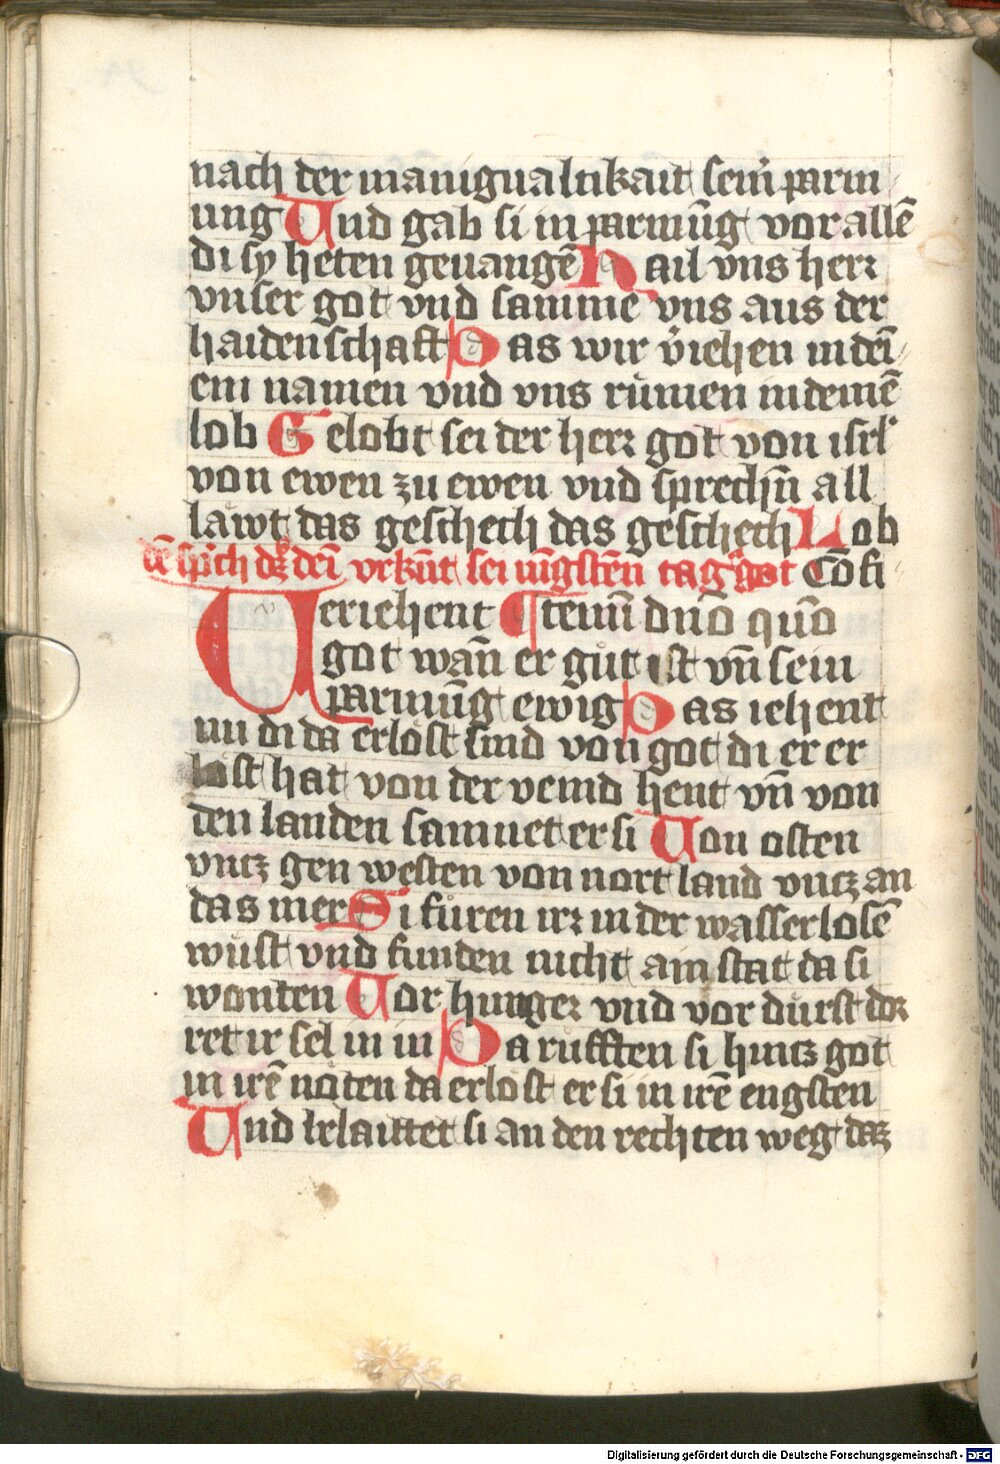 nach der manigualtikait seinr parm
ung Und gab si in parmūg vor allē
di sy heten geuangē Hail vns herr
vnser got vnd samme vns aus der
haidenschafft Das wir v̾iehen in dei
em namen vnd vns rümen in deinē
lob Gelobt sei der herr got von isrl
von ewen zu ewen vnd sprechn̄ all
läwt das geschech das geschech Lob
vrkūt sei iūgsten tag got Cōfi
Veriehent temī dn̄o qūo
got wan̄ er gůt ist vn̄ sein
parmūg ewig Das iehent
nu di da erlöst sind von got di er er
löst hat von der veind hent vn̄ von
den landen samnet er si Von osten
vntz gen westen von nort land vntz an
das mer Si fůren irr in der wasserlosē
wůst vnd funden nicht ain stat da si
wonten Vor hunger vnd vor dürst dor
ret ir sel in in Da růfften si hintz got
in irē nöten da erlöst er si in irē engsten
Und belaittet si an den rechten weg daz
Digitalisierung gefördert durch die Deutsche Forschungsgemeinschaft - DFG